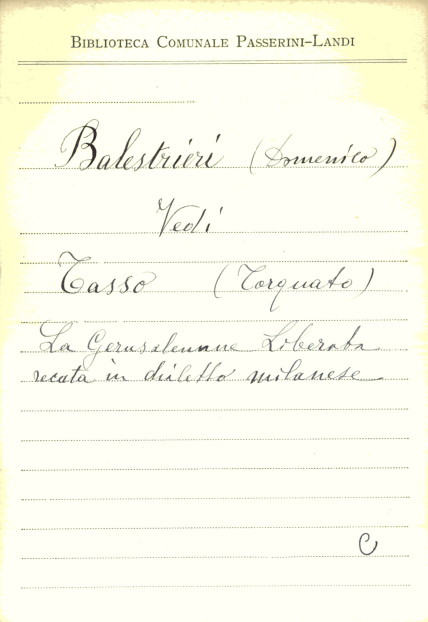 BIBLIOTECA COMUNALE PASSERINI-LANDI
Balestrieri (Domenico)
Vedi
Tasso (Torquato)
La Gerusalemme Liberata
recata in dialetto milanese
C